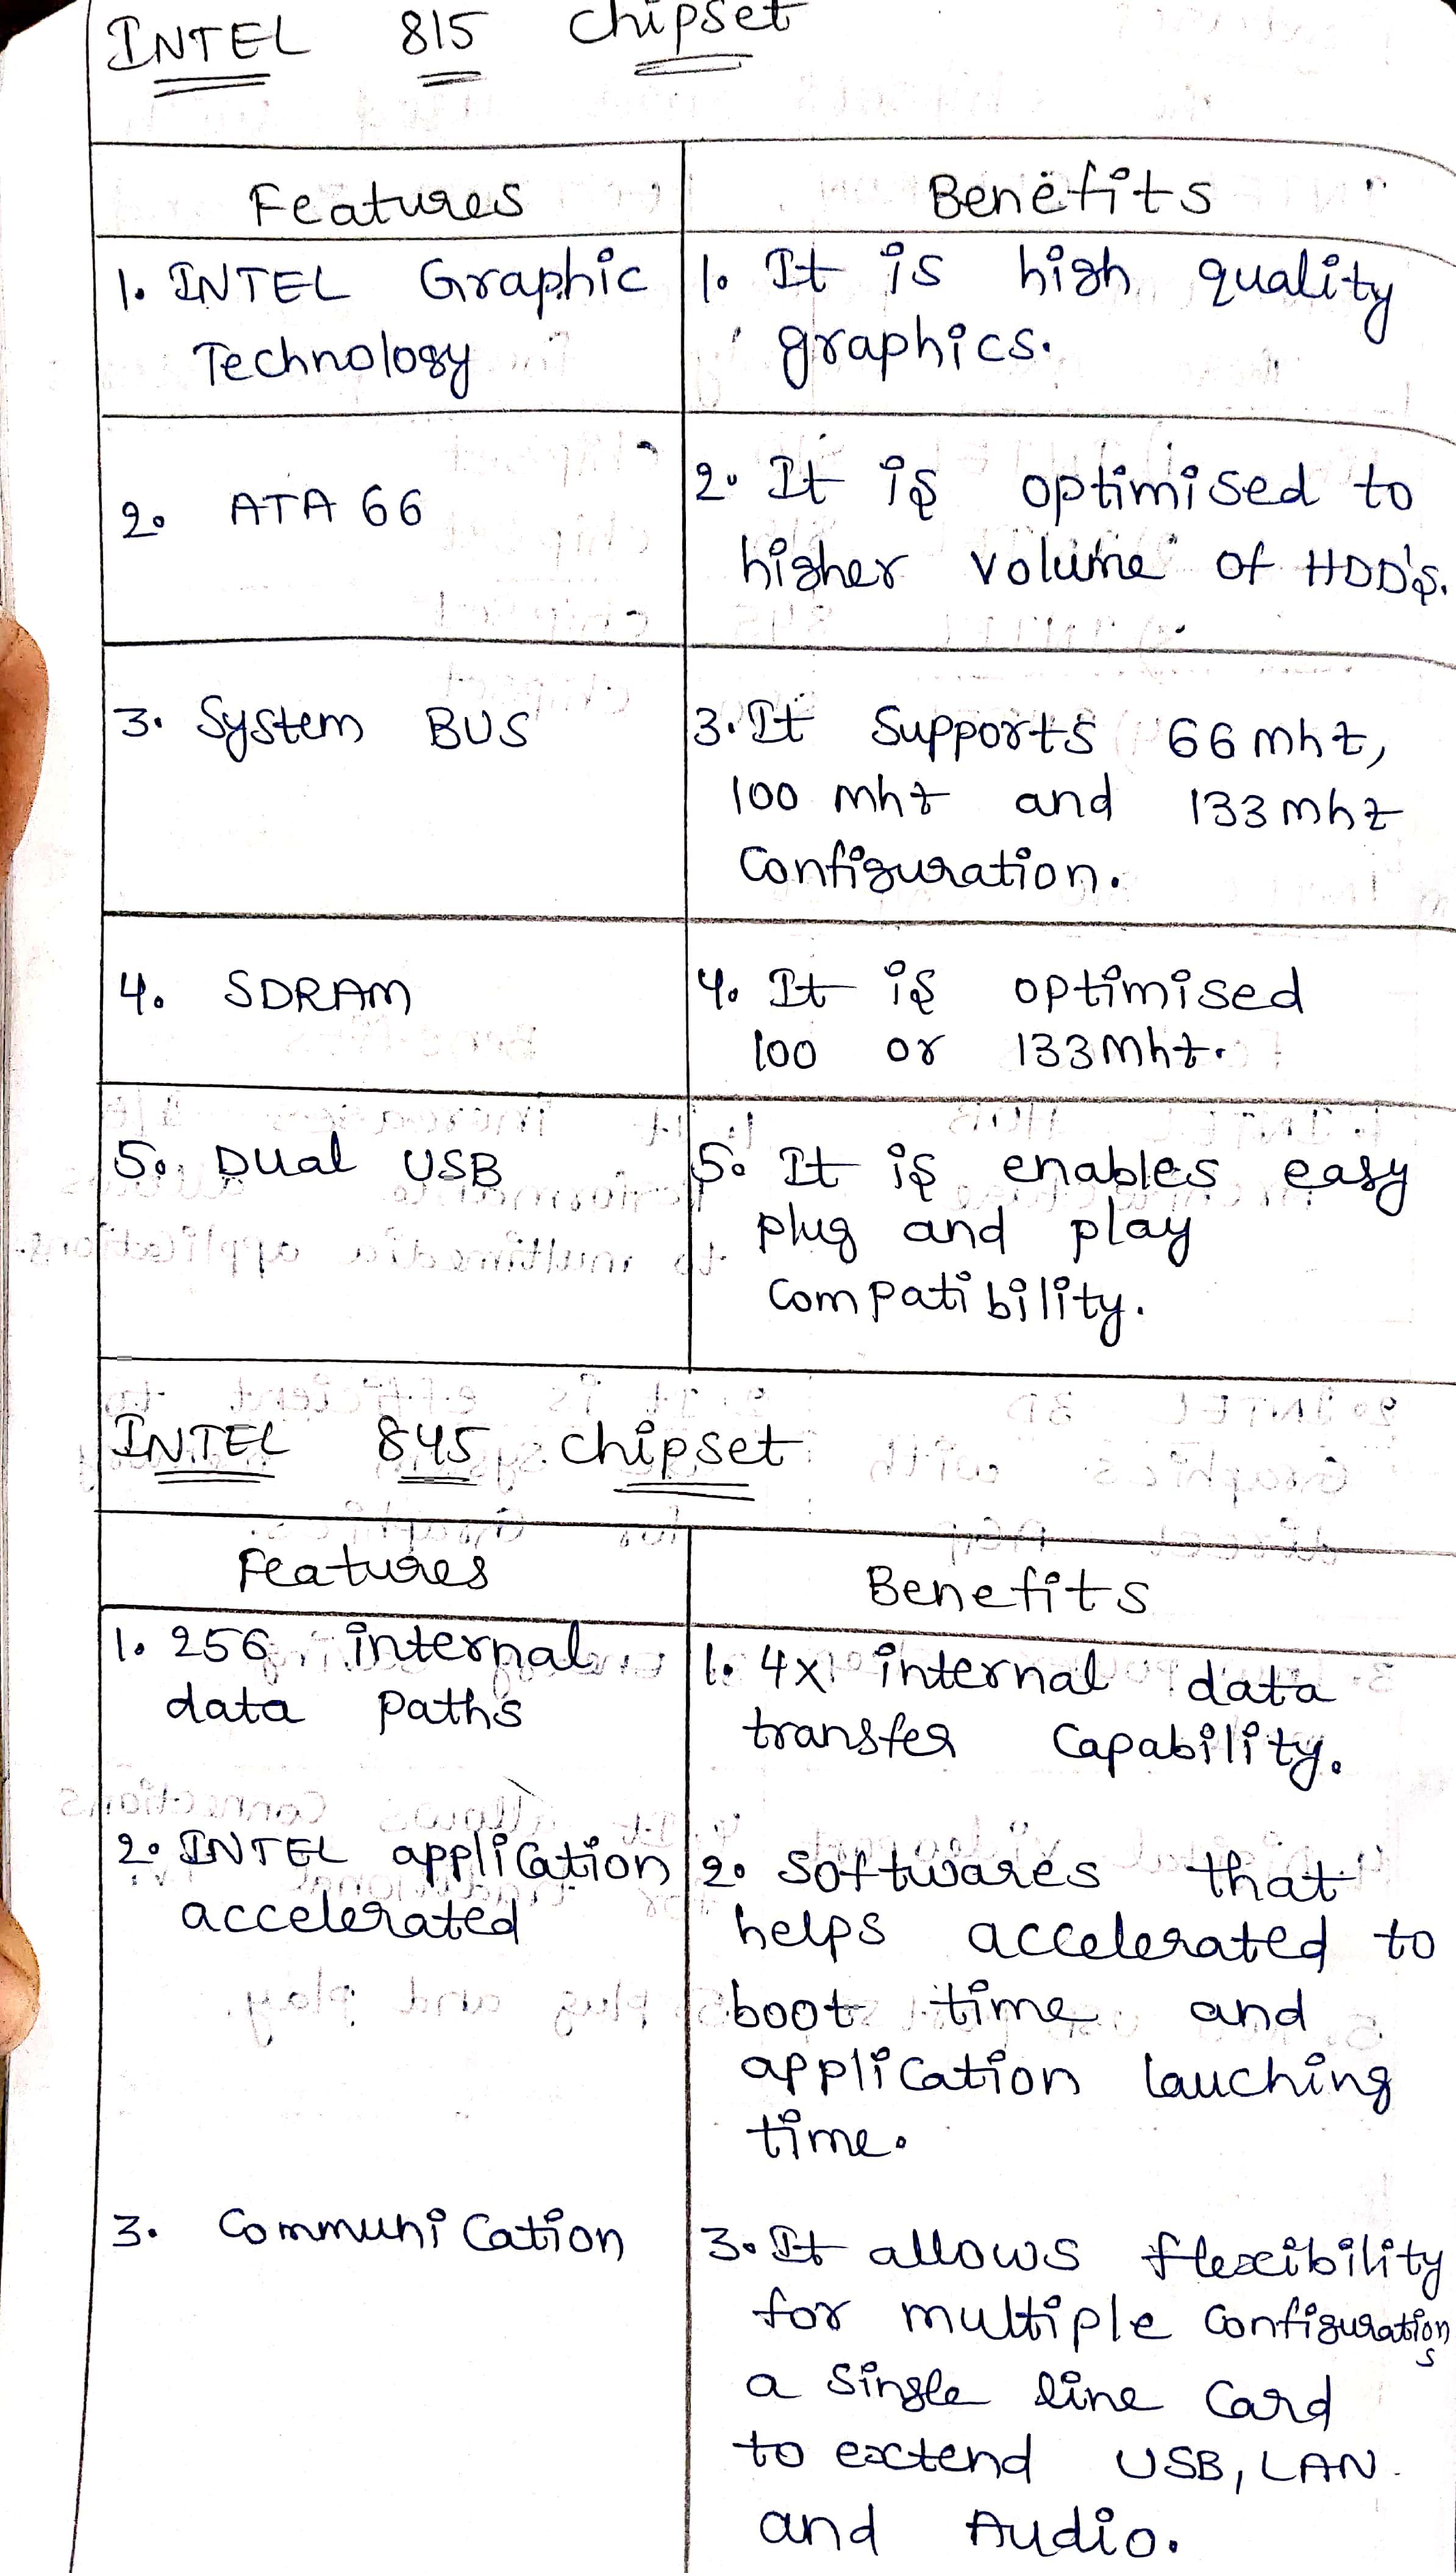 INTEL 815 chipset
Features
Benefits
1. INTEL Graphic
Technology
1. It is high quality
graphics.
2. ATA 66
2. It is optimised to
higher volume of HDD's.
3. System BUS
3. It supports 66 mhz,
100 mhz and 133 mhz
Configuration.
4. SDRAM
4. It is optimised
100 or 133 Mhz.
5. Dual USB
5. It is enables easy
plug and play
compatibility.
INTEL 845 chipset
Features
Benefits
1. 256 internal
data paths
1. 4x internal data
transfer capability.
2. INTEL application
accelerated
2. Softwares that
helps accelerated to
boot time and
application lauching
time.
3. Communication
3. It allows flexibility
for multiple configurations
a single line card
to extend USB, LAN
and Audio.